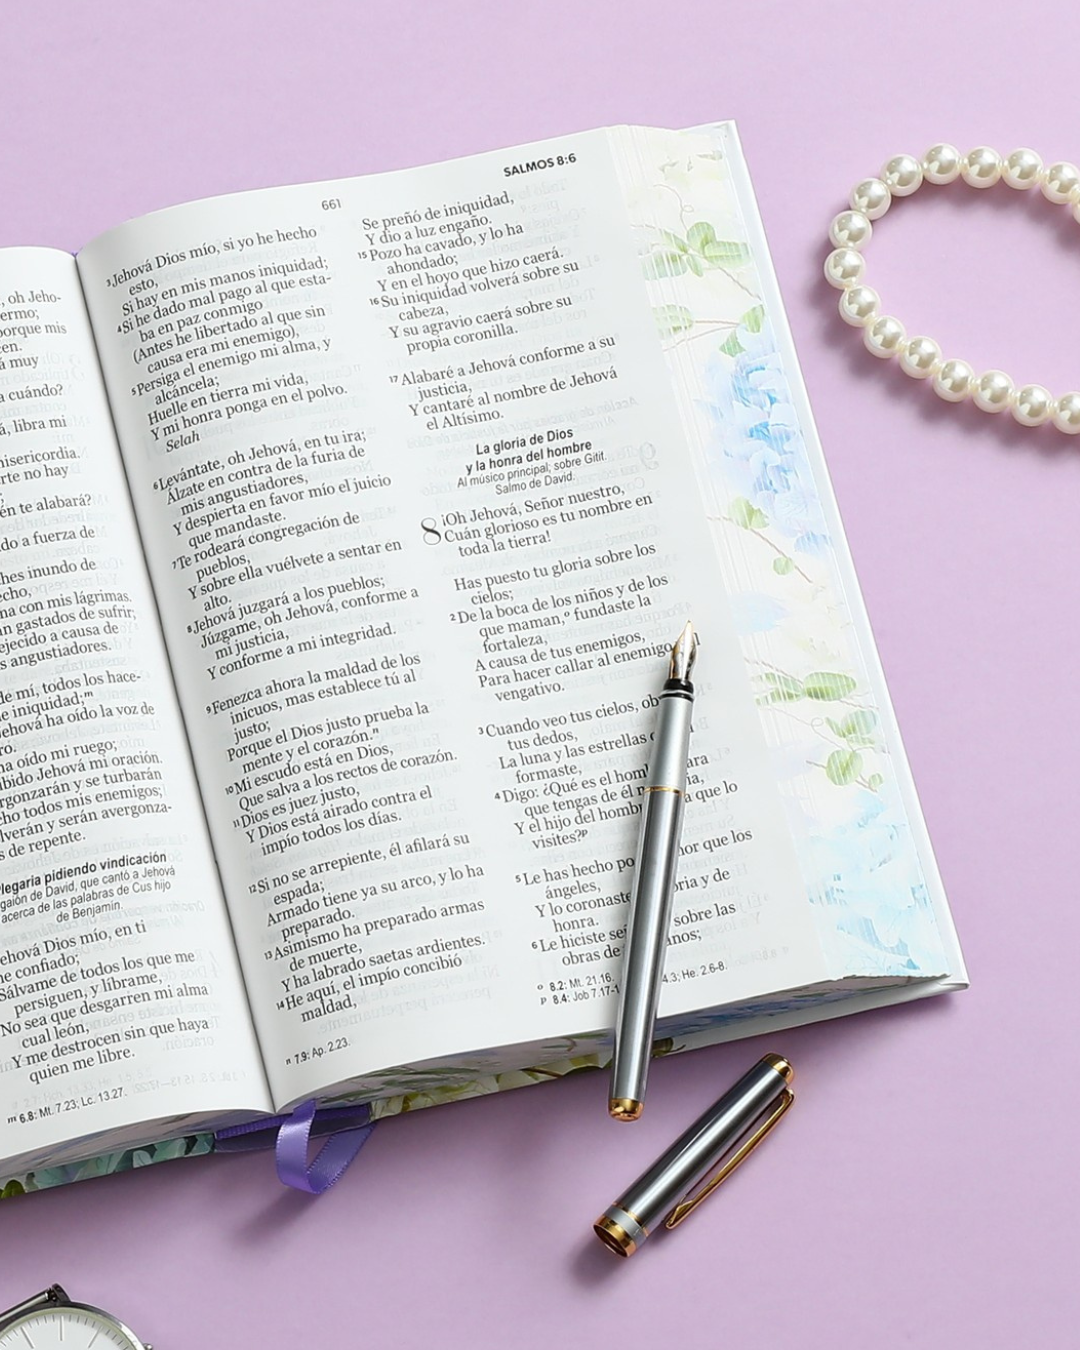 , oh Jeho-
ermo;
porque mis
cen.
á muy
a cuándo?
á, libra mi
misericordia.
rte no hay
;
én te alabará?
do a fuerza de
hes inundo de
echo,
ma con mis lágrimas.
an gastados de sufrir;
ejecido a causa de
s angustiadores.
de mí, todos los hace-
e iniquidad;ᵐ
ehová ha oído la voz de
ro.
ha oído mi ruego;
bido Jehová mi oración.
rgonzarán y se turbarán
cho todos mis enemigos;
lverán y serán avergonza-
s de repente.
legaria pidiendo vindicación
gaión de David, que cantó a Jehová
acerca de las palabras de Cus hijo
de Benjamín.
ehová Dios mío, en ti
he confiado;
Sálvame de todos los que me
persiguen, y líbrame,
No sea que desgarren mi alma
cual león,
Y me destrocen sin que haya
quien me libre.
m 6.8: Mt. 7.23; Lc. 13.27.
661
SALMOS 8:6
3 Jehová Dios mío, si yo he hecho
esto,
Si hay en mis manos iniquidad;
4 Si he dado mal pago al que esta-
ba en paz conmigo
(Antes he libertado al que sin
causa era mi enemigo),
5 Persiga el enemigo mi alma, y
alcáncela;
Huelle en tierra mi vida,
Y mi honra ponga en el polvo.
Selah
6 Levántate, oh Jehová, en tu ira;
Álzate en contra de la furia de
mis angustiadores,
Y despierta en favor mío el juicio
que mandaste.
7 Te rodeará congregación de
pueblos,
Y sobre ella vuélvete a sentar en
alto.
8 Jehová juzgará a los pueblos;
Júzgame, oh Jehová, conforme a
mi justicia,
Y conforme a mi integridad.
9 Fenezca ahora la maldad de los
inicuos, mas establece tú al
justo;
Porque el Dios justo prueba la
mente y el corazón.ⁿ
10 Mi escudo está en Dios,
Que salva a los rectos de corazón.
11 Dios es juez justo,
Y Dios está airado contra el
impío todos los días.
12 Si no se arrepiente, él afilará su
espada;
Armado tiene ya su arco, y lo ha
preparado.
13 Asimismo ha preparado armas
de muerte,
Y ha labrado saetas ardientes.
14 He aquí, el impío concibió
maldad,
n 7.9: Ap. 2.23.
Se preñó de iniquidad,
Y dio a luz engaño.
15 Pozo ha cavado, y lo ha
ahondado;
Y en el hoyo que hizo caerá.
16 Su iniquidad volverá sobre su
cabeza,
Y su agravio caerá sobre su
propia coronilla.
17 Alabaré a Jehová conforme a su
justicia,
Y cantaré al nombre de Jehová
el Altísimo.
La gloria de Dios
y la honra del hombre
Al músico principal; sobre Gitit.
Salmo de David.
8 ¡Oh Jehová, Señor nuestro,
Cuán glorioso es tu nombre en
toda la tierra!
Has puesto tu gloria sobre los
cielos;
2 De la boca de los niños y de los
que maman,º fundaste la
fortaleza,
A causa de tus enemigos,
Para hacer callar al enemigo
vengativo.
3 Cuando veo tus cielos, ob
tus dedos,
La luna y las estrellas
formaste,
4 Digo: ¿Qué es el hom para
que tengas de él m
Y el hijo del homb a que lo
visites?ᵖ
5 Le has hecho po nor que los
ángeles,
Y lo coronaste oria y de
honra.
6 Le hiciste se sobre las
obras de anos;
o 8.2: Mt. 21.16.
p 8.4: Job 7.17-1 4.3; He. 2.6-8.